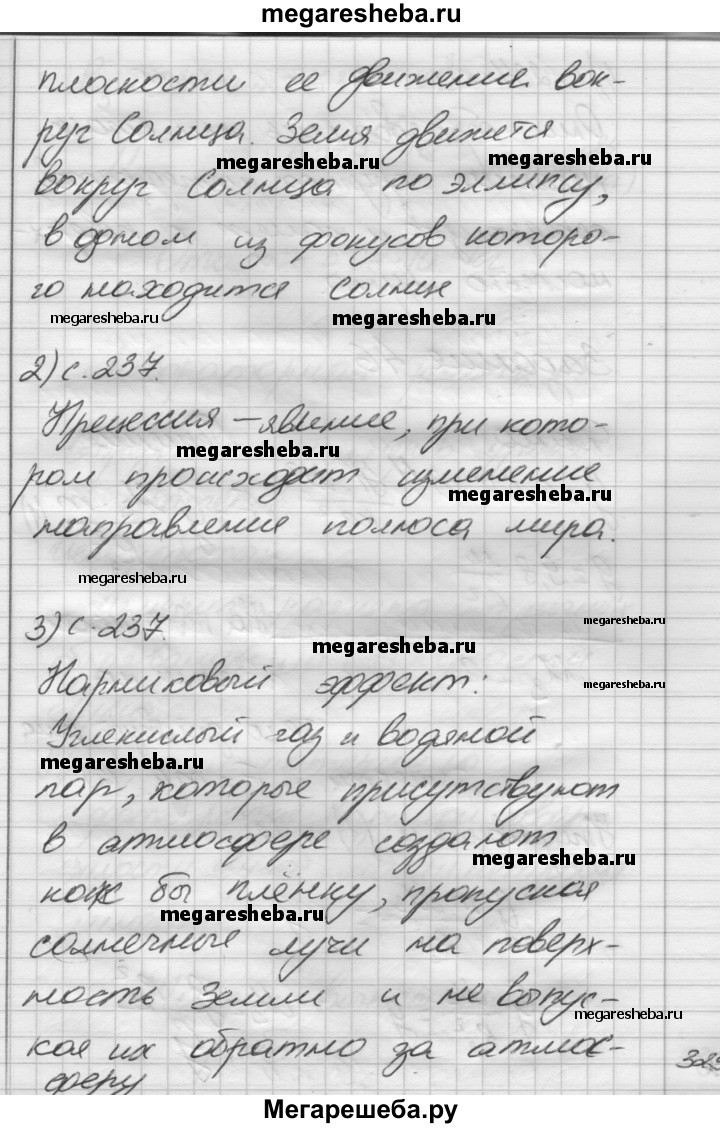 megaresheba.ru
плоскости ее движения вок-
руг Солнца. Земля движется
megaresheba.ru megaresheba.ru
вокруг Солнца по эллипсу,
в одном из фокусов которо-
го находится солнце
megaresheba.ru megaresheba.ru
2) с. 237.
Прецессия – явление, при кото-
megaresheba.ru
ром происходит изменение
megaresheba.ru
направление полюса мира.
megaresheba.ru
3) с. 237.
megaresheba.ru
megaresheba.ru
Парниковый эффект:
megaresheba.ru
Углекислый газ и водяной
megaresheba.ru
пар, которые присутствуют
в атмосфере создают
megaresheba.ru
как бы плёнку, пропуская
megaresheba.ru
солнечные лучи на поверх-
ность Земли и не выпус-
megaresheba.ru
кая их обратно за атмос-
феру
Мегарешеба.ру